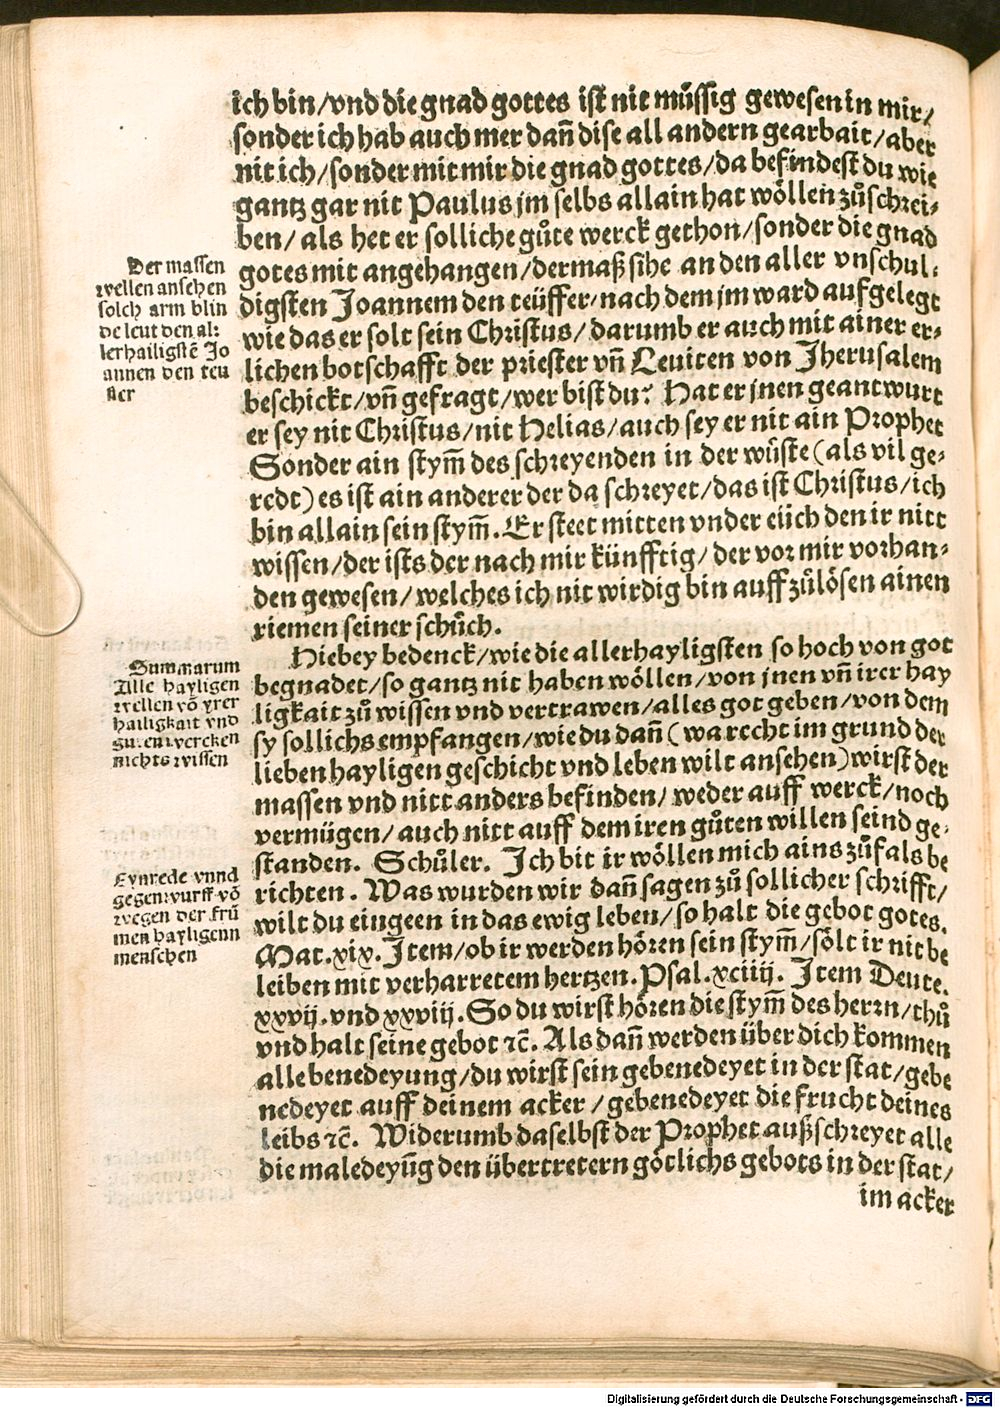 ich bin/vnd die gnad gottes ist nit müssig gewesen in mir/
sonder ich hab auch mer dañ dise all andern gearbait/aber
nit ich/sonder mit mir die gnad gottes/da befindest du wie
gantz gar nit Paulus jm selbs allain hat wöllen zůschrei-
ben/ als het er solliche gůte werck gethon/sonder die gnad
gotes mit angehangen/dermaß sihe an den aller vnschul-
digsten Joannem den teüffer/nach dem jm ward aufgelegt
wie das er solt sein Christus/darumb er auch mit ainer er-
lichen botschafft der priester vñ Leuiten von Jherusalem
beschickt/vñ gefragt/wer bist du? Hat er jnen geantwurt
er sey nit Christus/nit Helias/auch sey er nit ain Prophet
Sonder ain stym̄ des schreyenden in der wüste (als vil ge-
redt) es ist ain anderer der da schreyet/das ist Christus/ich
bin allain sein stym̄. Er steet mitten vnder eüch den ir nitt
wissen/der ists der nach mir künfftig/ der vor mir vorhan-
den gewesen/welches ich nit wirdig bin auff zůlösen ainen
riemen seiner schůch.
Der massen
wellen ansehen
solch arm blin
de leut den al-
lerhailigstē Jo
annen den teu
ffer
Hiebey bedenck/wie die allerhayligsten so hoch von got
begnadet/so gantz nit haben wöllen/von jnen vñ irer hay
ligkait zů wissen vnd vertrawen/alles got geben/von dem
sy sollichs empfangen/wie du dañ (wa recht im grund der
lieben hayligen geschicht vnd leben wilt ansehen) wirst der
massen vnd nitt anders befinden/ weder auff werck/noch
vermügen/auch nitt auff dem iren gůten willen seind ge-
standen. Schůler. Ich bit ir wöllen mich ains zůfals be
richten. Was wurden wir dañ sagen zů sollicher schrifft/
wilt du eingeen in das ewig leben/so halt die gebot gotes.
Mat.xix. Item/ob ir werden hören sein stym̄/sölt ir nit be
leiben mit verharretem hertzen. Psal.xciiij. Item Deute.
xxvij.vnd xxviij. So du wirst hören die stym̄ des herrn/thů
vnd halt seine gebot ⁊c̄. Als dañ werden über dich kommen
alle benedeyung/du wirst sein gebenedeyet in der stat/gebe
nedeyet auff deinem acker/gebenedeyet die frucht deines
leibs ⁊c̄. Widerumb daselbst der Prophet außschreyet alle
die maledeyūg den übertretern götlichs gebots in der stat/
im acker
Summarum
Alle hayligen
wellen vō yrer
hailigkait vnd
guten wercken
nichts wissen
Eynrede vnnd
gegenwurff vō
wegen der frū
men hayligenn
menschen
Digitalisierung gefördert durch die Deutsche Forschungsgemeinschaft - DFG